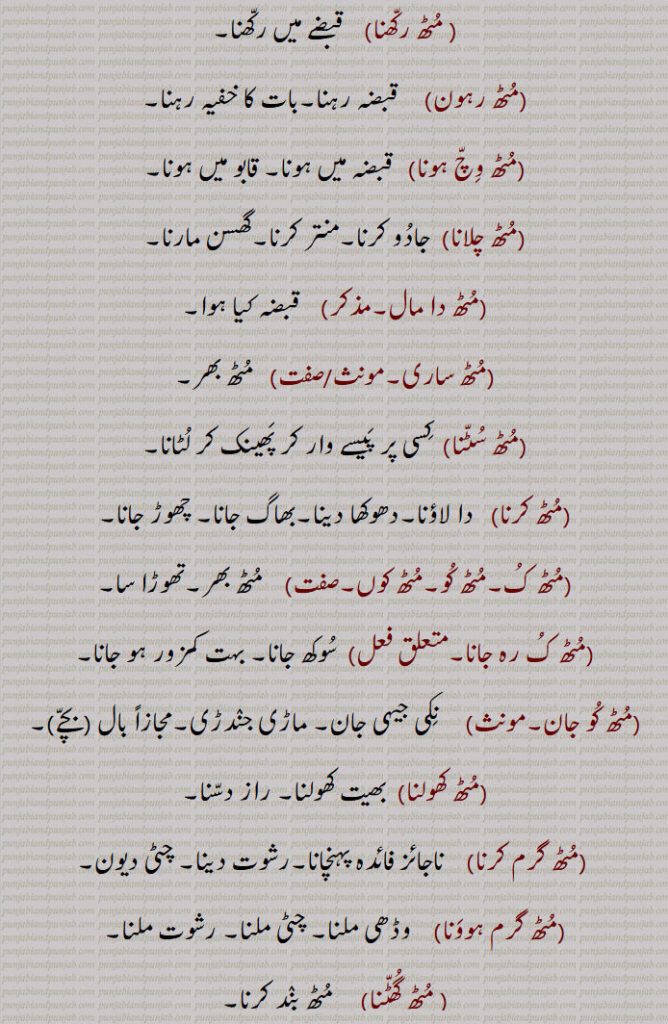 ( مُٹھ رکھّنا) قبضے میں رکھّنا۔
(مُٹھ رہون) قبضہ رہنا۔بات کا خفیہ رہنا۔
(مُٹھ وِچّ ہونا) قبضہ میں ہونا۔ قابو میں ہونا۔
(مُٹھ چلانا) جادُو کرنا۔منتر کرنا۔گھسن مارنا۔
(مُٹھ دا مال۔مذکر) قبضہ کیا ہوا۔
(مُٹھ ساری۔مونث/صفت) مُٹھ بھر۔
(مُٹھ سُٹّنا) کِسی پر پَیسے وار کر پَھینک کر لُٹانا۔
(مُٹھ کرنا) دا لاؤنا۔دھوکھا دینا۔بھاگ جانا۔ چھوڑ جانا۔
(مُٹھ کُ۔مُٹھ کُو۔مُٹھ کوں۔صفت) مُٹھ بھر۔تھوڑا سا۔
(مُٹھ کُ رہ جانا۔متعلق فعل) سُوکھ جانا۔ بہت کمزور ہو جانا۔
(مُٹھ کُو جان۔مونث) نِکی جیہی جان۔ ماڑی جنْدڑی۔مجازاً بال (بچّے)۔
(مُٹھ کھولنا) بھیت کھولنا۔ راز دسّنا۔
(مُٹھ گرم کرنا) ناجائز فائدہ پہنچانا۔رشوت دینا۔ چٹی دیون۔
(مُٹھ گرم ہووَنا) وڈھی ملنا۔ چٹی ملنا۔ رشوت ملنا۔
( مُٹھ گُھٹّنا) مُٹھ بنْد کرنا۔